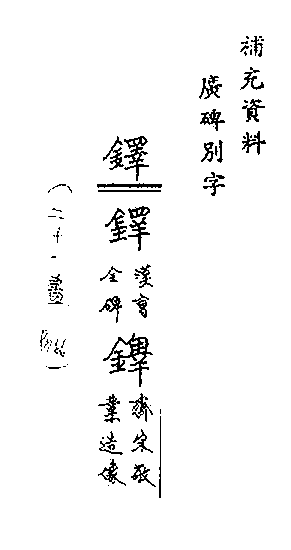 補充資料
廣碑別字
鐸
鐸
漢曹
全碑
鐸
齊宋敬
業造像
(二十一畫